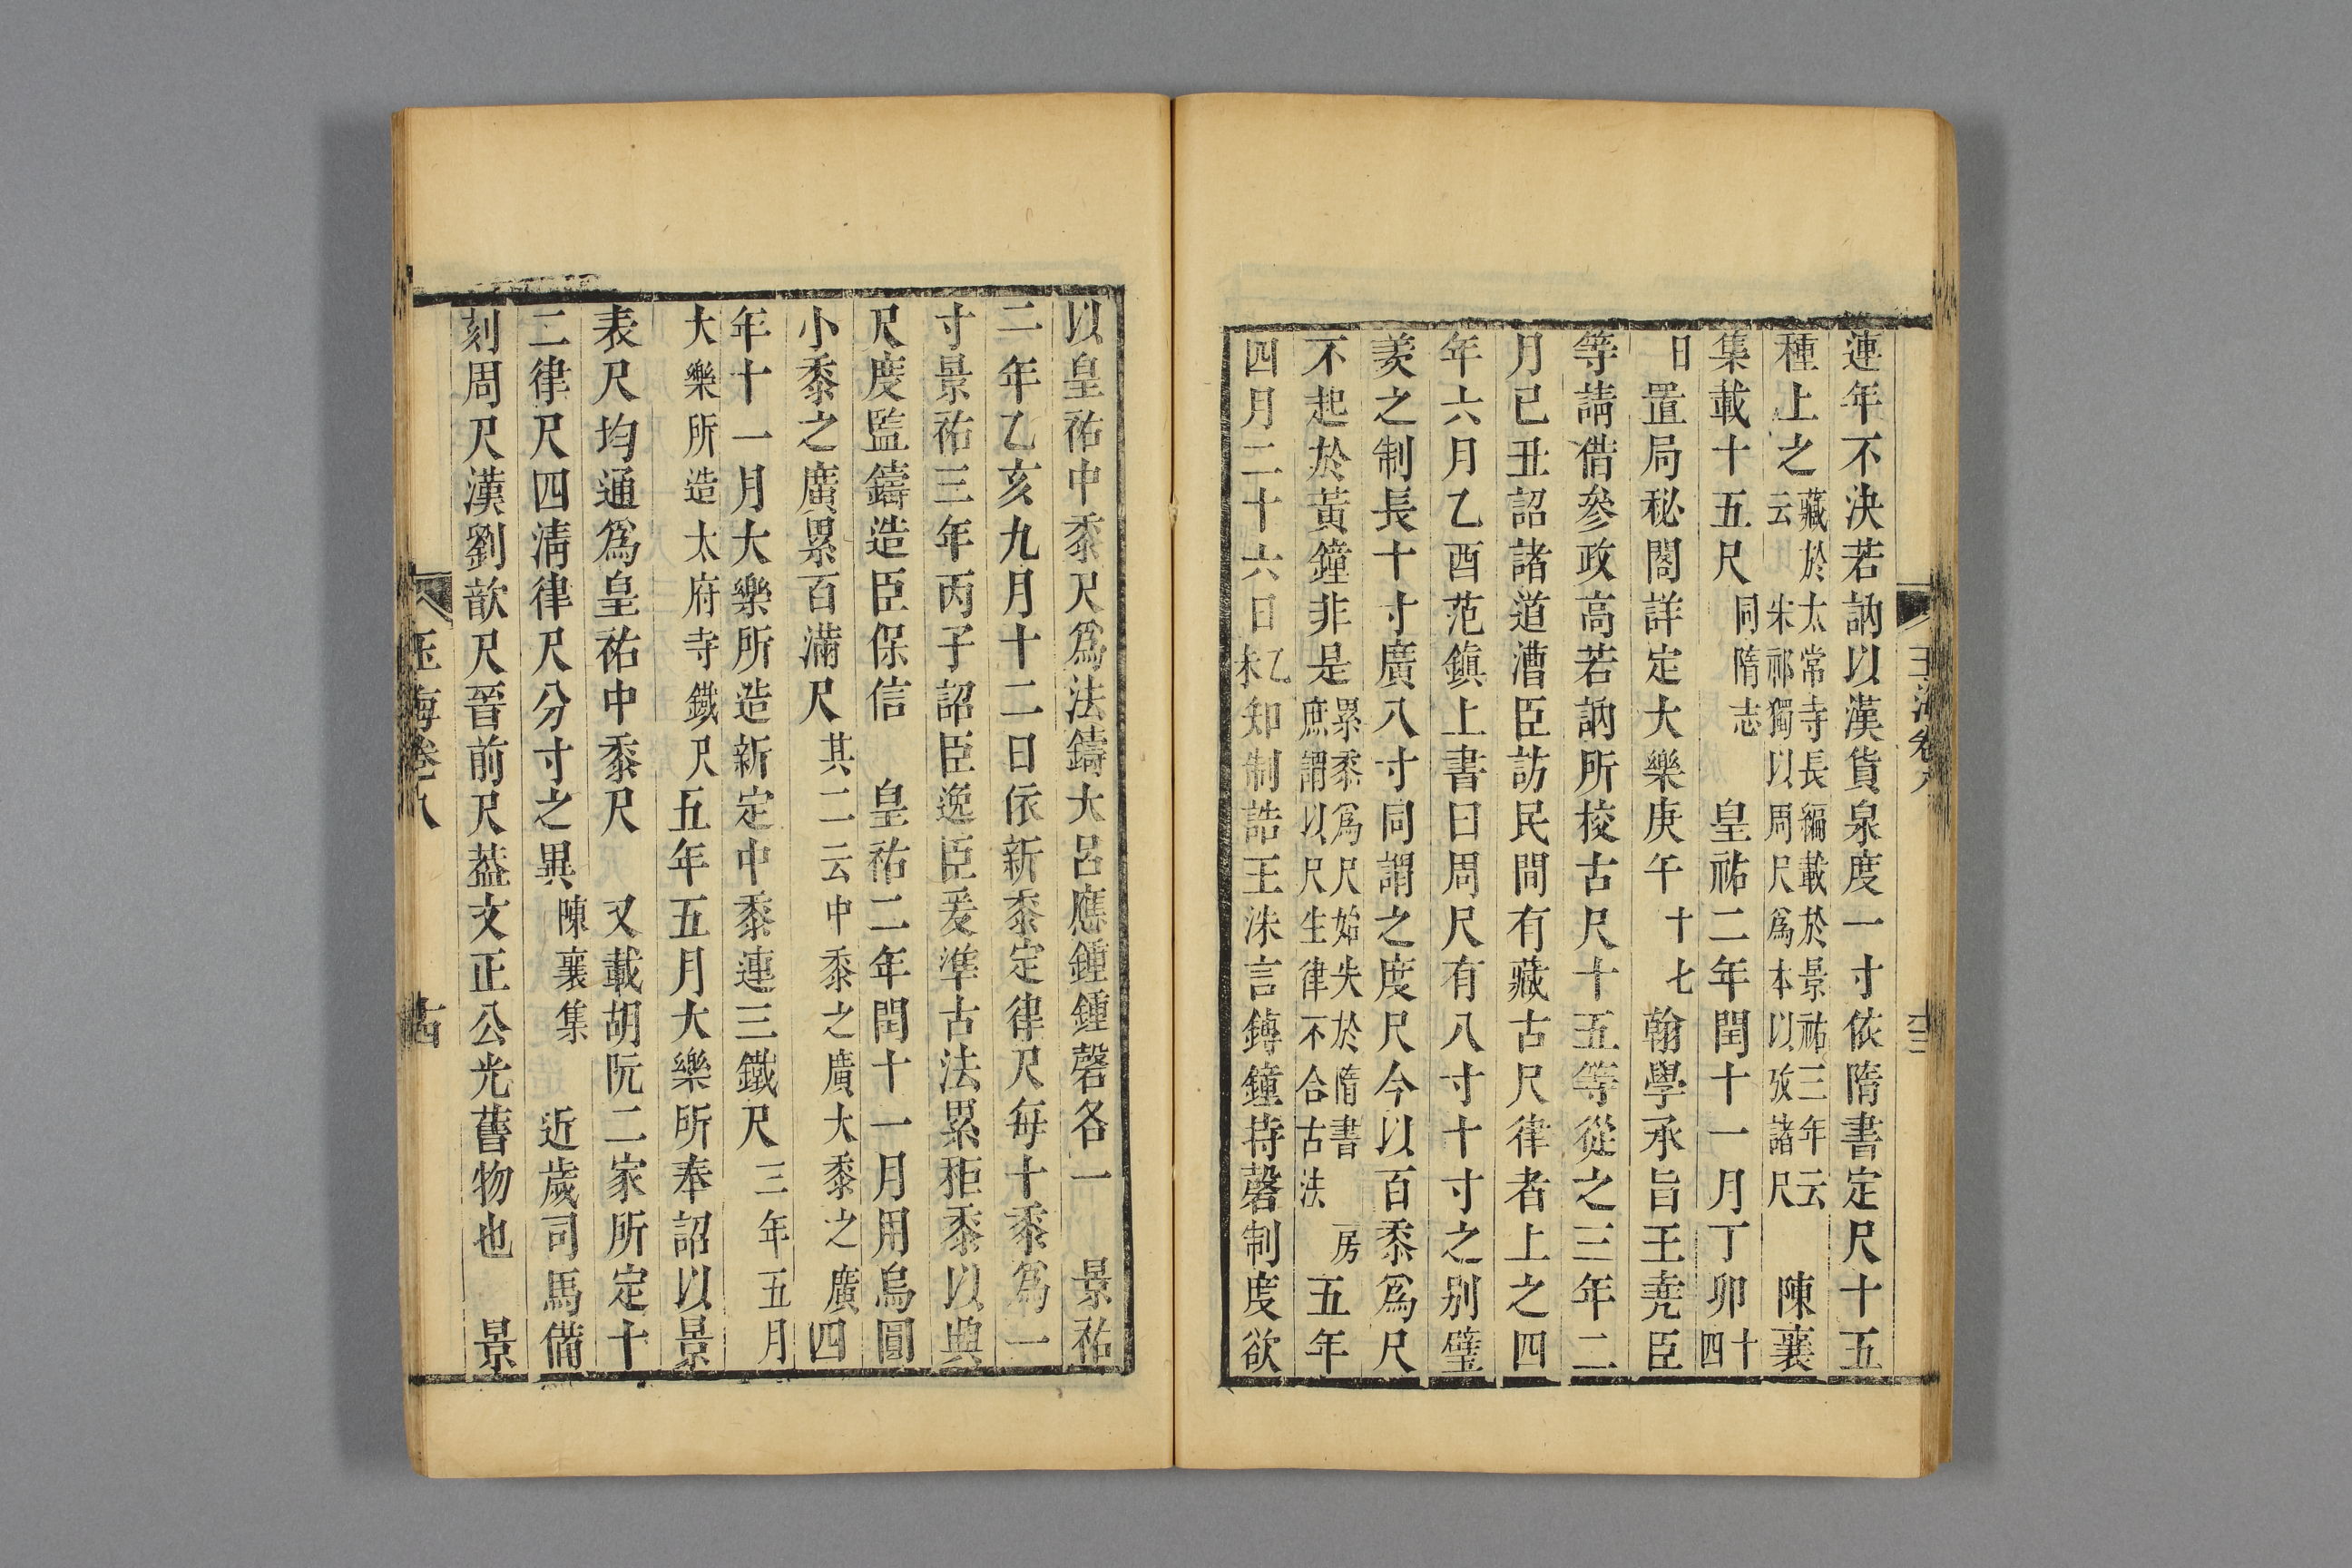 連年不決若訥以漢貨泉度一寸依隋書定尺十五
種上之藏於太常寺長編載於景祐三年云云宋祁獨以周尺爲本以攷諸尺 陳襄
集載十五尺同隋志 皇祐二年閏十一月丁卯十四
日置局秘閣詳定大樂庚午十七翰學承旨王堯臣
等請借參政高若訥所挍古尺十五等從之三年二
月己丑詔諸道漕臣訪民間有藏古尺律者上之四
年六月乙酉范鎮上書曰周尺有八寸十寸之別璧
羨之制長十寸廣八寸同謂之度尺今以百黍爲尺
不起於黃鐘非是累黍爲尺始失於隋書 房庶謂以尺生律不合古法 五年
四月二十六日乙未知制誥王洙言鎛鐘特磬制度欲
玉海卷八
以皇祐中黍尺爲法鑄大呂應鍾鍾磬各一 景祐
二年乙亥九月十二日依新黍定律尺每十黍爲一
寸景祐三年丙子詔臣逸臣爰準古法累秬黍以典
尺度監鑄造臣保信 皇祐二年閏十一月用烏圓
小黍之廣累百滿尺其二云中黍之廣大黍之廣四
年十一月大樂所造新定中黍連三鐵尺三年五月
大樂所造太府寺鐵尺五年五月大樂所奉詔以景
表尺均通爲皇祐中黍尺 又載胡阮二家所定十
二律尺四淸律尺分寸之異陳襄集 近歲司馬備
刻周尺漢劉歆尺晉前尺葢文正公光舊物也 景
玉海卷八 古